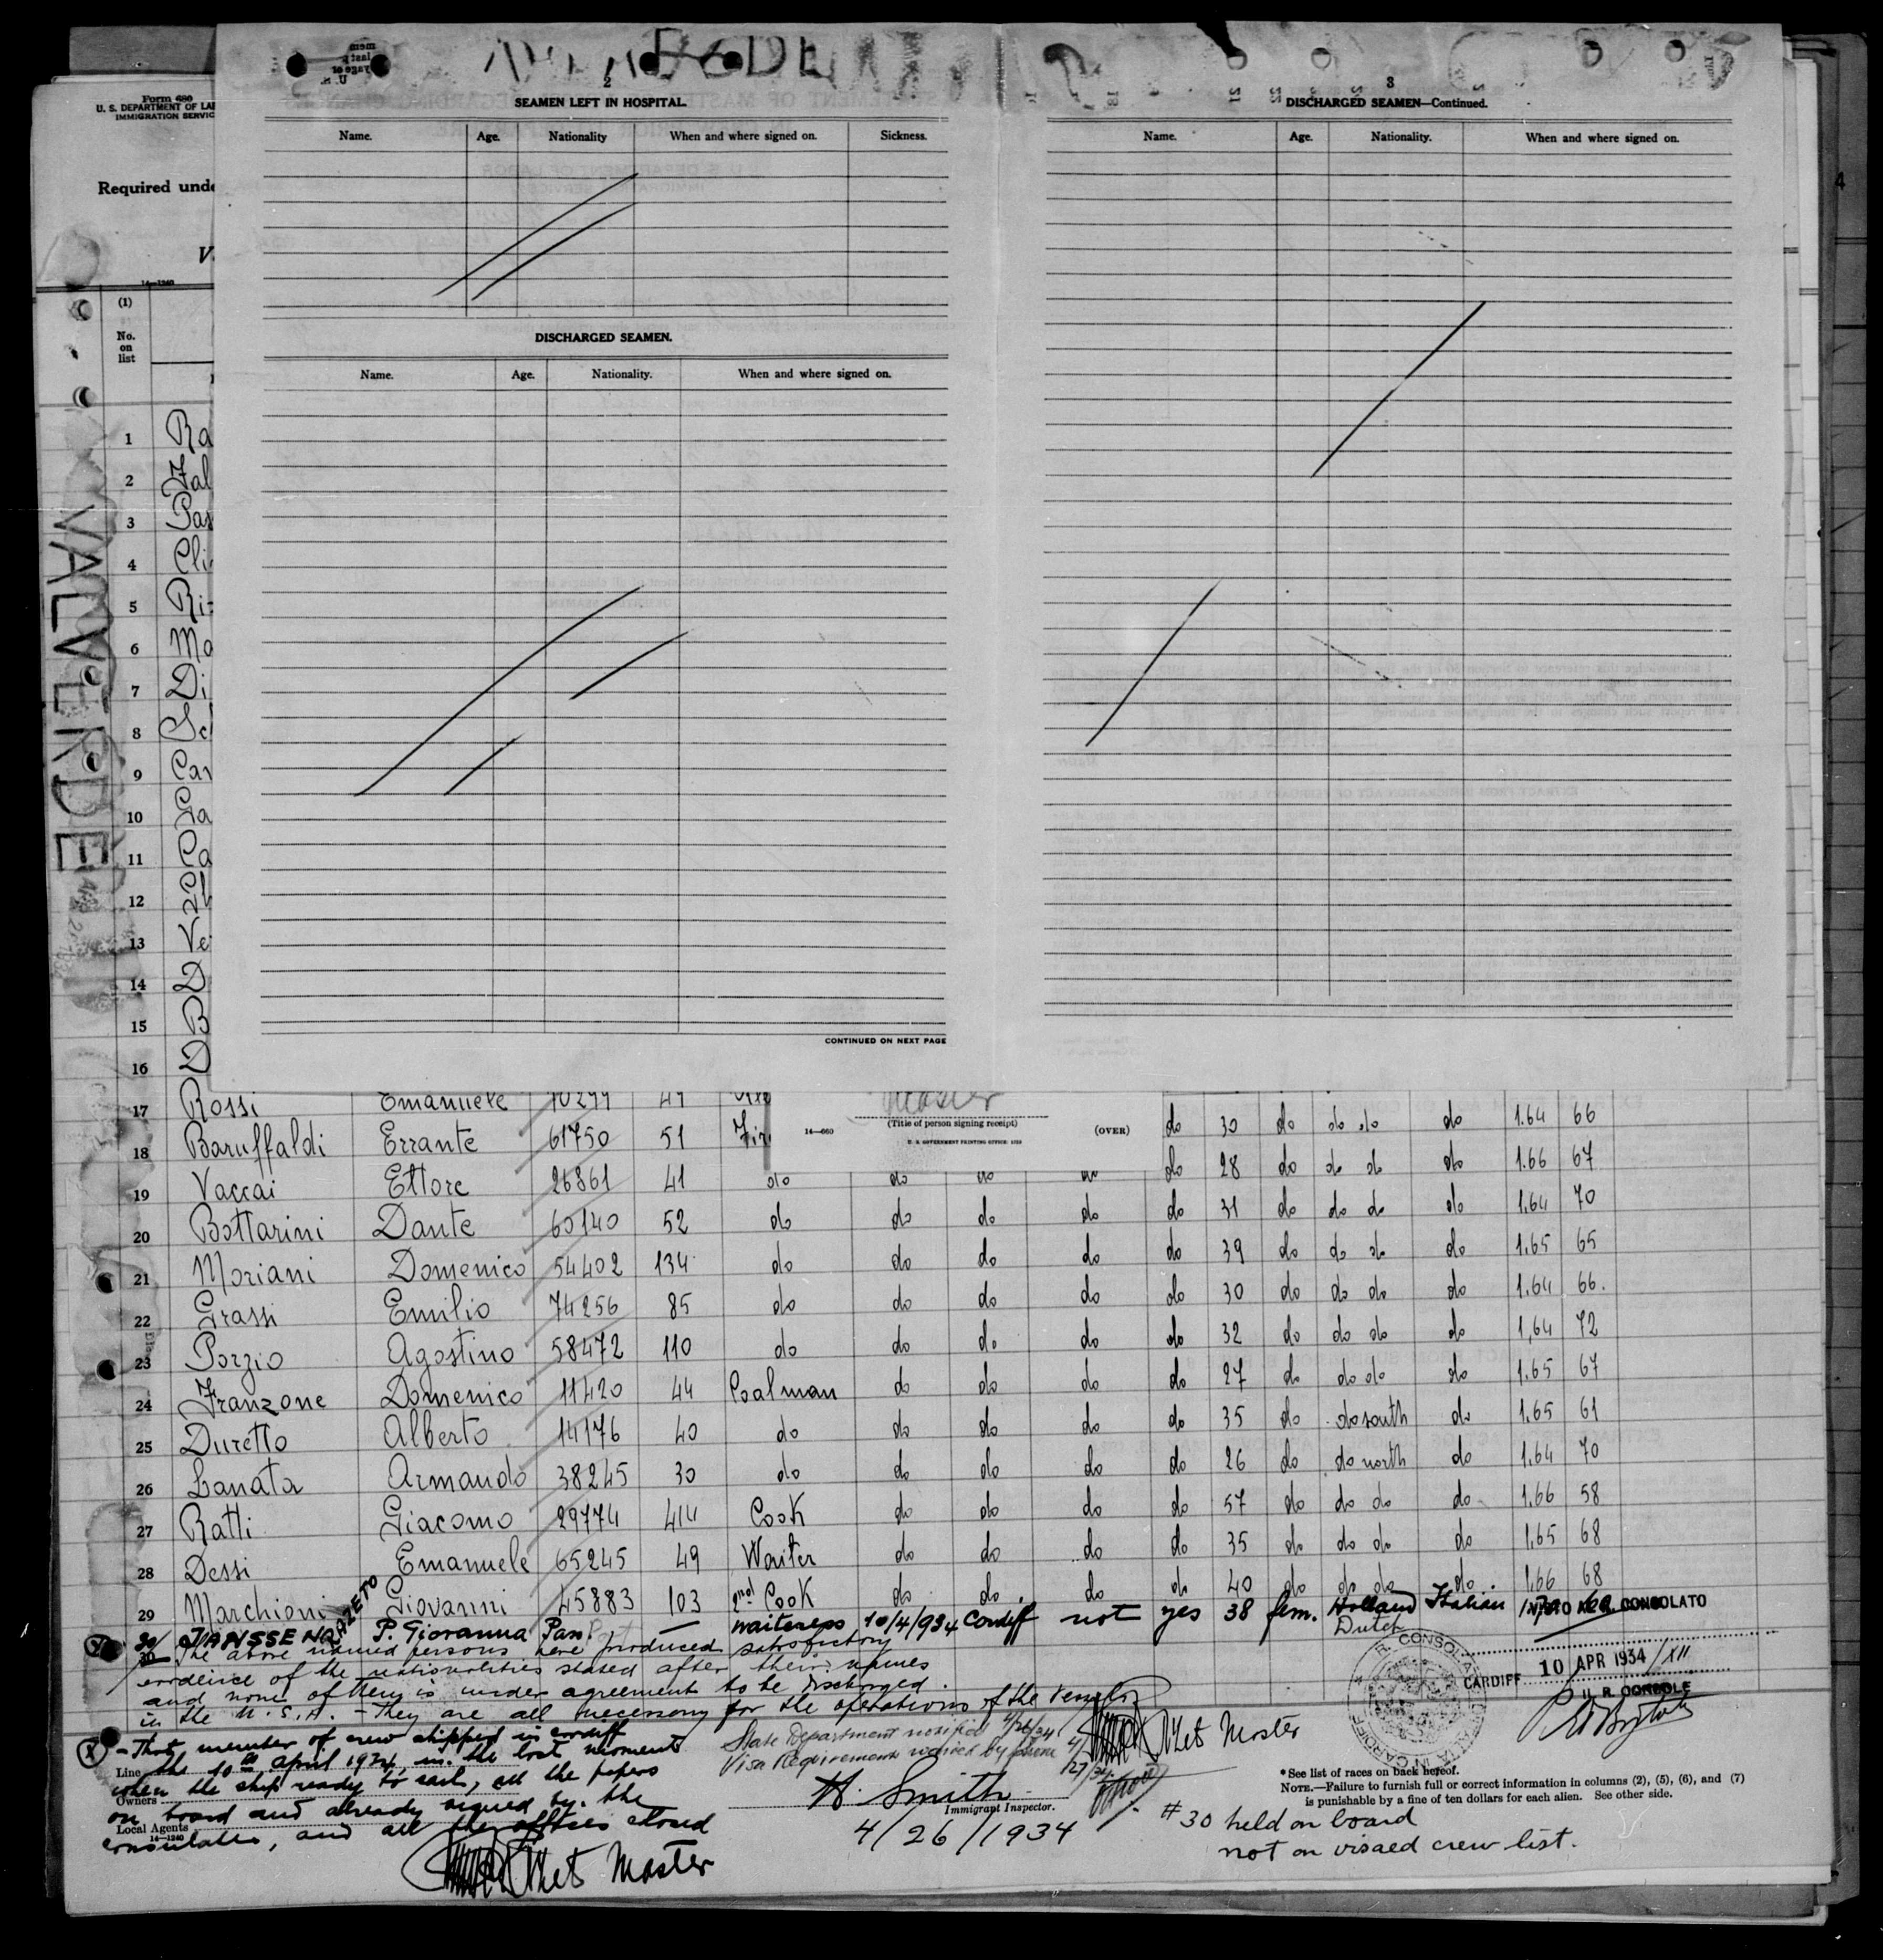 Form 680
U. S. DEPARTMENT OF LA
IMMIGRATION SERVIC
Required unde
V
14—1240
(1)
No.
on
list
VALVERDE
2
SEAMEN LEFT IN HOSPITAL.
Name. Age. Nationality When and where signed on. Sickness.
DISCHARGED SEAMEN.
Name. Age. Nationality. When and where signed on.
CONTINUED ON NEXT PAGE
3
DISCHARGED SEAMEN—Continued.
Name. Age. Nationality. When and where signed on.
4
1 Ra
2 Fal
3 Pas
4 Cli
5 Ri
6 Mo
7 Di
8 Sc
9 Car
10 Ga
11 Ca
12
13 Ve
14 D
15 B
16 D
(Title of person signing receipt)
14—660 (OVER)
U. S. GOVERNMENT PRINTING OFFICE: 1929
17 Rossi Emanuele 10299 49 do 30 do do do do 1.64 66
18 Baruffaldi Errante 61750 51 Fir do 28 do do do do 1.66 67
19 Vaccai Ettore 26861 41 do do do do do 31 do do do do 1.64 70
20 Bottarini Dante 60140 52 do do do do do 39 do do do do 1.65 65
21 Moriani Domenico 54402 134 do do do do do 30 do do do do 1.64 66.
22 Grassi Emilio 74256 85 do do do do do 32 do do do do 1.64 72
23 Porzio Agostino 58472 110 do do do do do 27 do do do do 1.65 67
24 Franzone Domenico 11420 44 Coalman do do do do 35 do do south do 1.65 61
25 Duretto Alberto 14176 40 do do do do do 26 do do north do 1.64 70
26 Lanata Armando 38245 30 do do do do do 57 do do do do 1.66 58
27 Ratti Giacomo 29774 414 Cook do do do do 35 do do do do 1.65 68
28 Dessi Emanuele 65245 49 Waiter do do do do 40 do do do do 1.66 68
29 Marchioni Giovanni 45883 103 2nd Cook do do do
30/ JANSSEN P. Giovanna Pan. — waitress 10/4/934 Cardiff not yes 38 fem. Holland Italian
Dutch
VISTO CONSOLATO
CARDIFF 10 APR 1934/XII
IL R. CONSOLE
30 The above named persons have produced satisfactory
evidence of the nationalities stated after their names
and none of them is under agreement to be discharged
in the U.S.A. - They are all necessary for the operations of the vessel
(X) - That member of crew shipped in cardiff
the 10th april 1934, in the last moment
when the ship ready to sail, all the papers
on board and already signed by the
consulates, and all the offices closed
Line
Owners
Local Agents
14—1240
Master
State Department notified 4/26/34
Visa Requirement waived by phone 4/27/34
Master
H. Smith
Immigrant Inspector.
4/26/1934
* See list of races on back hereof.
NOTE.—Failure to furnish full or correct information in columns (2), (5), (6), and (7)
is punishable by a fine of ten dollars for each alien. See other side.
# 30 held on board
not on visaed crew list.